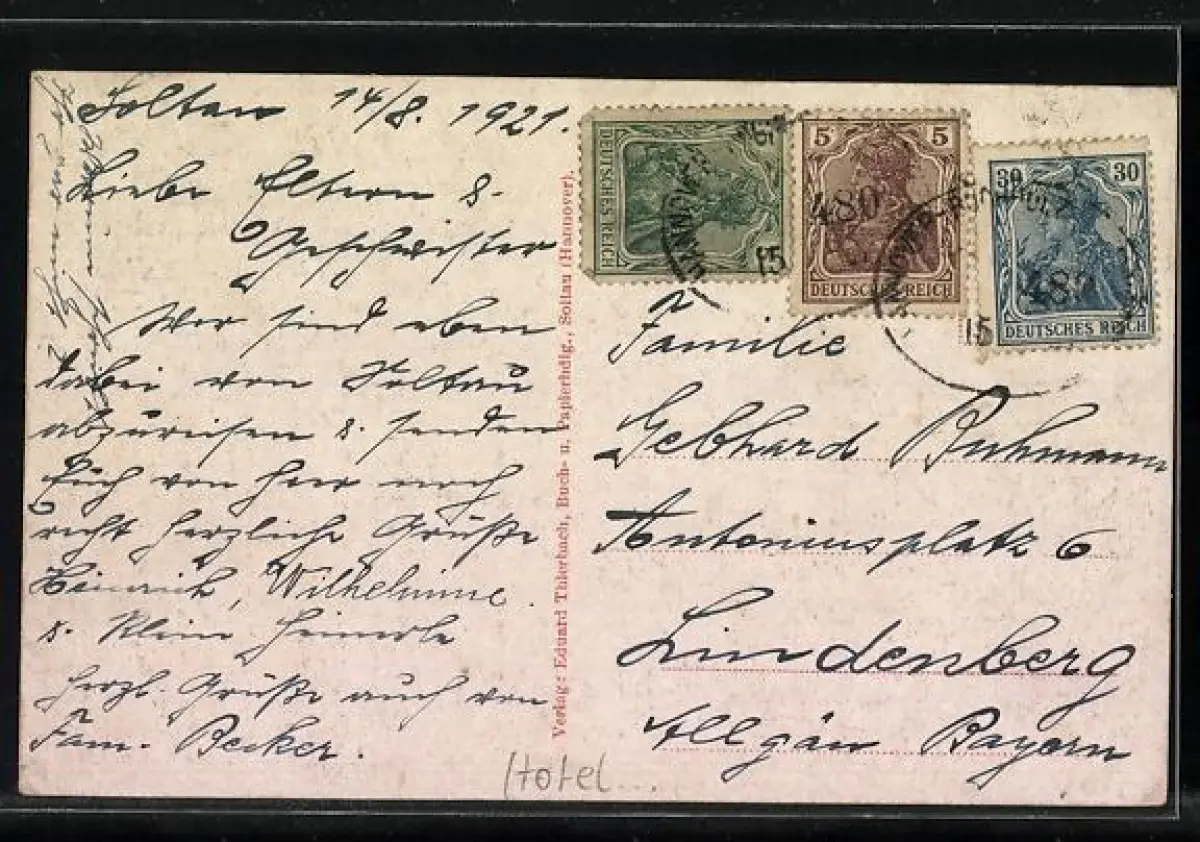 Soltau 14/8. 1921.
Liebe Eltern &
Geschwister
Wir sind eben
dabei von Soltau
abzureisen & senden
Euch von hier noch
recht herzliche Grüße
Heinrich, Wilhelmine.
& klein Heinerle
herzl. Grüße auch von
Fam. Becker.
Verlag: Eduard Thierbach, Buch- u. Papierhdlg., Soltau (Hannover).
DEUTSCHES REICH
5 5
DEUTSCHES REICH
30 30
DEUTSCHES REICH
HANNOVER
15
480
HANNOVER
15
482
Familie
Gebhard Buhmann
Antoniusplatz 6
Lindenberg
Allgäu Bayern
Hotel...